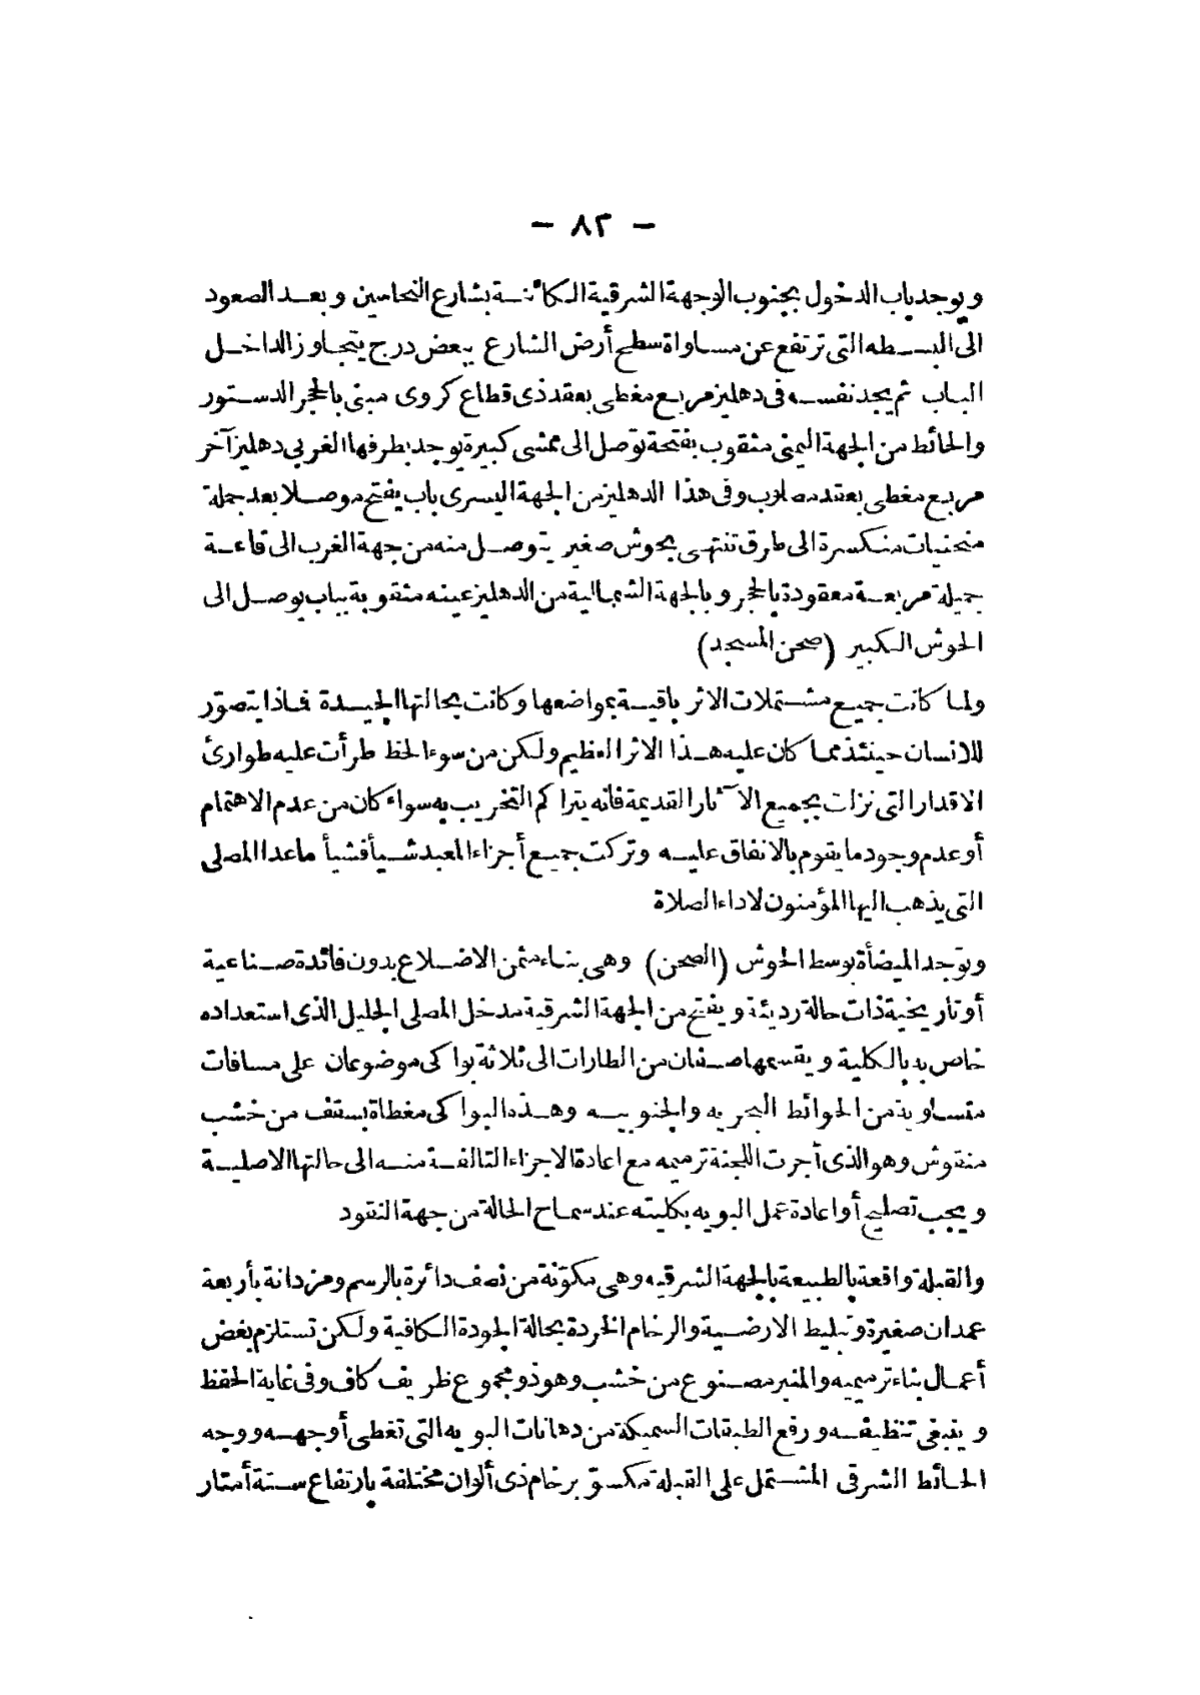 — ٨٢ —
ويوجد باب الدخول بجنوب الوجهة الشرقية الكائنة بشارع النحاسين وبعد الصعود
الى البسطه التى ترتفع عن مساواة سطح أرض الشارع ببعض درج يتجاوز الداخل
الباب ثم يجد نفسه فى دهليز مربع مغطى بعقد ذى قطاع كروى مبنى بالحجر الدستور
والحائط من الجهة اليمنى مثقوب بفتحة توصل الى ممشى كبيرة يوجد بطرفها الغربى دهليز آخر
مربع مغطى بعقد مصلوب وفى هذا الدهليز من الجهة اليسرى باب يفتح موصلا بعد جملة
منحنيات منكسرة الى طرق تنتهى بحوش صغير يتوصل منه من جهة الغرب الى قاعة
جميلة مربعة معقودة بالحجر وبالجهة الشمالية من الدهليز عينه مثقوبة بباب يوصل الى
الحوش الكبير (صحن المسجد)
ولما كانت جميع مشتملات الاثر باقية بمواضعها وكانت بحالتها الجيدة فماذا يتصوّر
للانسان حينئذ مما كان عليه هذا الاثر العظيم ولكن من سوء الحظ طرأت عليه طوارئ
الاقدار التى نزلت بجميع الآثار القديمة فانه يتراكم التخريب به سواء كان من عدم الاهتمام
أو عدم وجود ما يقوم بالانفاق عليه وتركت جميع أجزاء المعبد شيأ فشيأ ماعدا المصلى
التى يذهب اليها المؤمنون لاداء الصلاة
وتوجد الميضأة بوسط الحوش (الصحن) وهى بناء مثمن الاضلاع بدون فائدة صناعية
أو تاريخية ذات حالة رديئة ويفتح من الجهة الشرقية مدخل المصلى الجليل الذى استعداده
خاص به بالكلية ويقسمها صفان من الطارات الى ثلاثة بواكى موضوعان على مسافات
متساوية من الحوائط البحريه والجنوبيه وهذه البواكى مغطاة بسقف من خشب
منقوش وهو الذى أجرت اللجنة ترميمه مع اعادة الاجزاء التالفة منه الى حالتها الاصلية
ويجب تصليح أو اعادة عمل البويه بكليته عند سماح الحالة من جهة النقود
والقبلة واقعة بالطبيعة بالجهة الشرقيه وهى مكوّنة من نصف دائرة بالرسم ومزدانة بأربعة
عمدان صغيرة وتبليط الارضية والرخام الخردة بحالة الجودة الكافية ولكن تستلزم بعض
أعمال بناء ترميميه والمنبر مصنوع من خشب وهو ذو مجموع ظريف كاف وفى غاية الحفظ
وينبغى تنظيفه ورفع الطبقات السميكة من دهانات البويه التى تغطى أوجهه ووجه
الحائط الشرقى المشتمل على القبلة مكسوّ برخام ذى ألوان مختلفة بارتفاع ستة أمتار